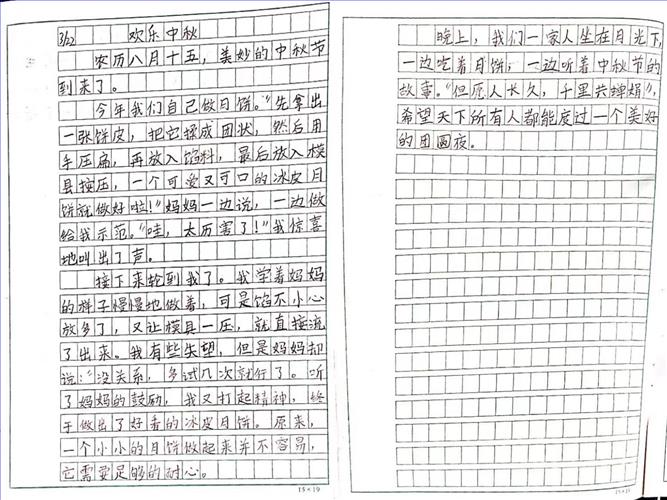 3/22 欢乐中秋
农历八月十五，美妙的中秋节
到来了。
今年我们自己做月饼。“先拿出
一张饼皮，把它揉成团状，然后用
手压扁，再放入馅料，最后放入模
具按压，一个可爱又可口的冰皮月
饼就做好啦！”妈妈一边说，一边做
给我示范。“哇，太厉害了！”我惊喜
地叫出了声。
接下来轮到我了。我学着妈妈
的样子慢慢地做着，可是馅不小心
放多了，又让模具一压，就直接流
了出来。我有些失望，但是妈妈却
说：“没关系，多试几次就行了。听
了妈妈的鼓励，我又打起精神，终
于做出了好看的冰皮月饼。原来，
一个小小的月饼做起来并不容易，
它需要足够的耐心。
15×19
晚上，我们一家人坐在月光下，
一边吃着月饼，一边听着中秋节的
故事。“但愿人长久，千里共婵娟”，
希望天下所有人都能度过一个美好
的团圆夜。
15×19